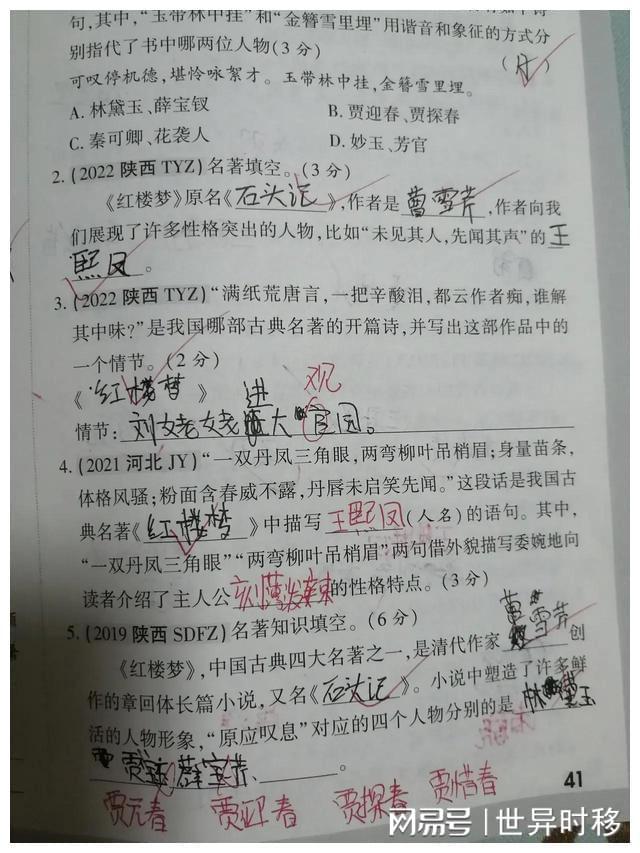 句,其中,“玉带林中挂”和“金簪雪里埋”用谐音和象征的方式分
别指代了书中哪两位人物(3分)
(A)
可叹停机德,堪怜咏絮才。玉带林中挂,金簪雪里埋。
A.林黛玉、薛宝钗 B.贾迎春、贾探春
C.秦可卿、花袭人 D.妙玉、芳官
2.(2022陕西TYZ)名著填空。(3分)
《红楼梦》原名《石头记》,作者是曹雪芹,作者向我
们展现了许多性格突出的人物,比如“未见其人,先闻其声”的王
熙凤。
3.(2022陕西TYZ)“满纸荒唐言,一把辛酸泪,都云作者痴,谁解
其中味?”是我国哪部古典名著的开篇诗,并写出这部作品中的
一个情节。(2分)
《红楼梦》
进 观
情节:刘姥姥大官园。
4.(2021河北JY)“一双丹凤三角眼,两弯柳叶吊梢眉;身量苗条,
体格风骚;粉面含春威不露,丹唇未启笑先闻。”这段话是我国古
典名著《红楼梦》中描写王熙凤(人名)的语句。其中,
“一双丹凤三角眼”“两弯柳叶吊梢眉”两句借外貌描写委婉地向
读者介绍了主人公刻薄泼辣的性格特点。(3分)
5.(2019陕西SDFZ)名著知识填空。(6分)
《红楼梦》,中国古典四大名著之一,是清代作家曹雪芹创
作的章回体长篇小说,又名《石头记》。小说中塑造了许多鲜
活的人物形象,“原应叹息”对应的四个人物分别的是林黛玉
、。
贾元春 贾迎春 贾探春 贾惜春
41
网易号 世异时移